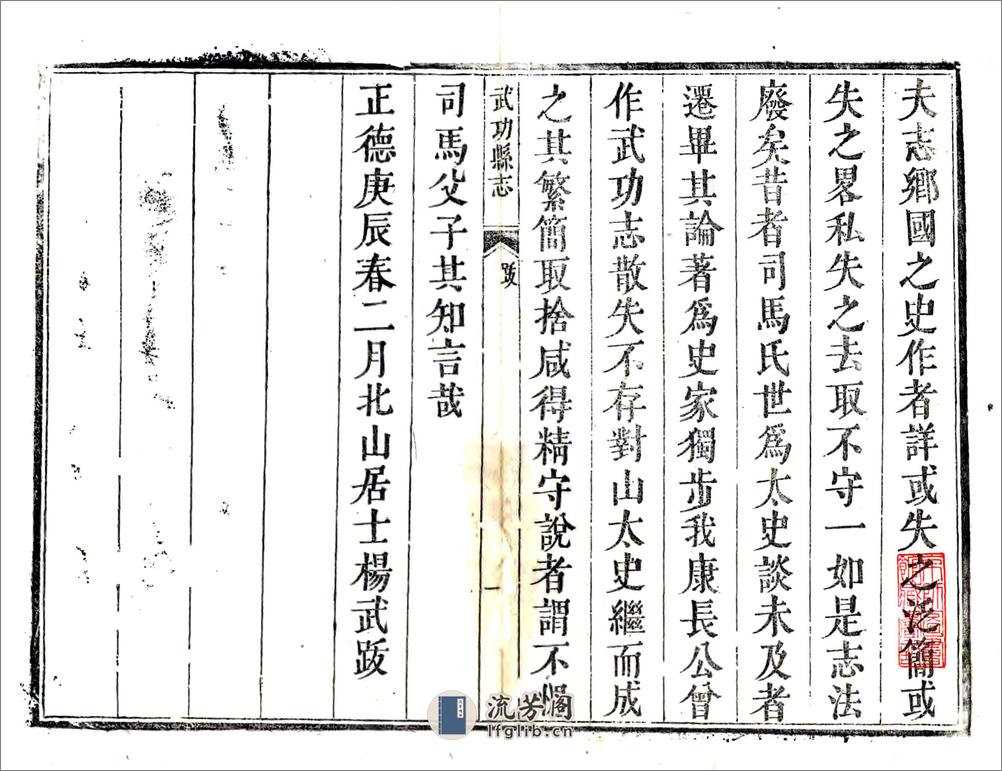 夫志鄉國之史作者詳或失之泛簡或
失之畧私失之去取不守一如是志法
廢矣昔者司馬氏世爲太史談未及者
遷畢其論著爲史家獨步我康長公曾
作武功志散失不存對山太史繼而成
之其繁簡取捨咸得精守說者謂不
武功縣志
跋
一
司馬父子其知言哉
正德庚辰春二月北山居士楊武跋
流芳閣
lfglib.cn